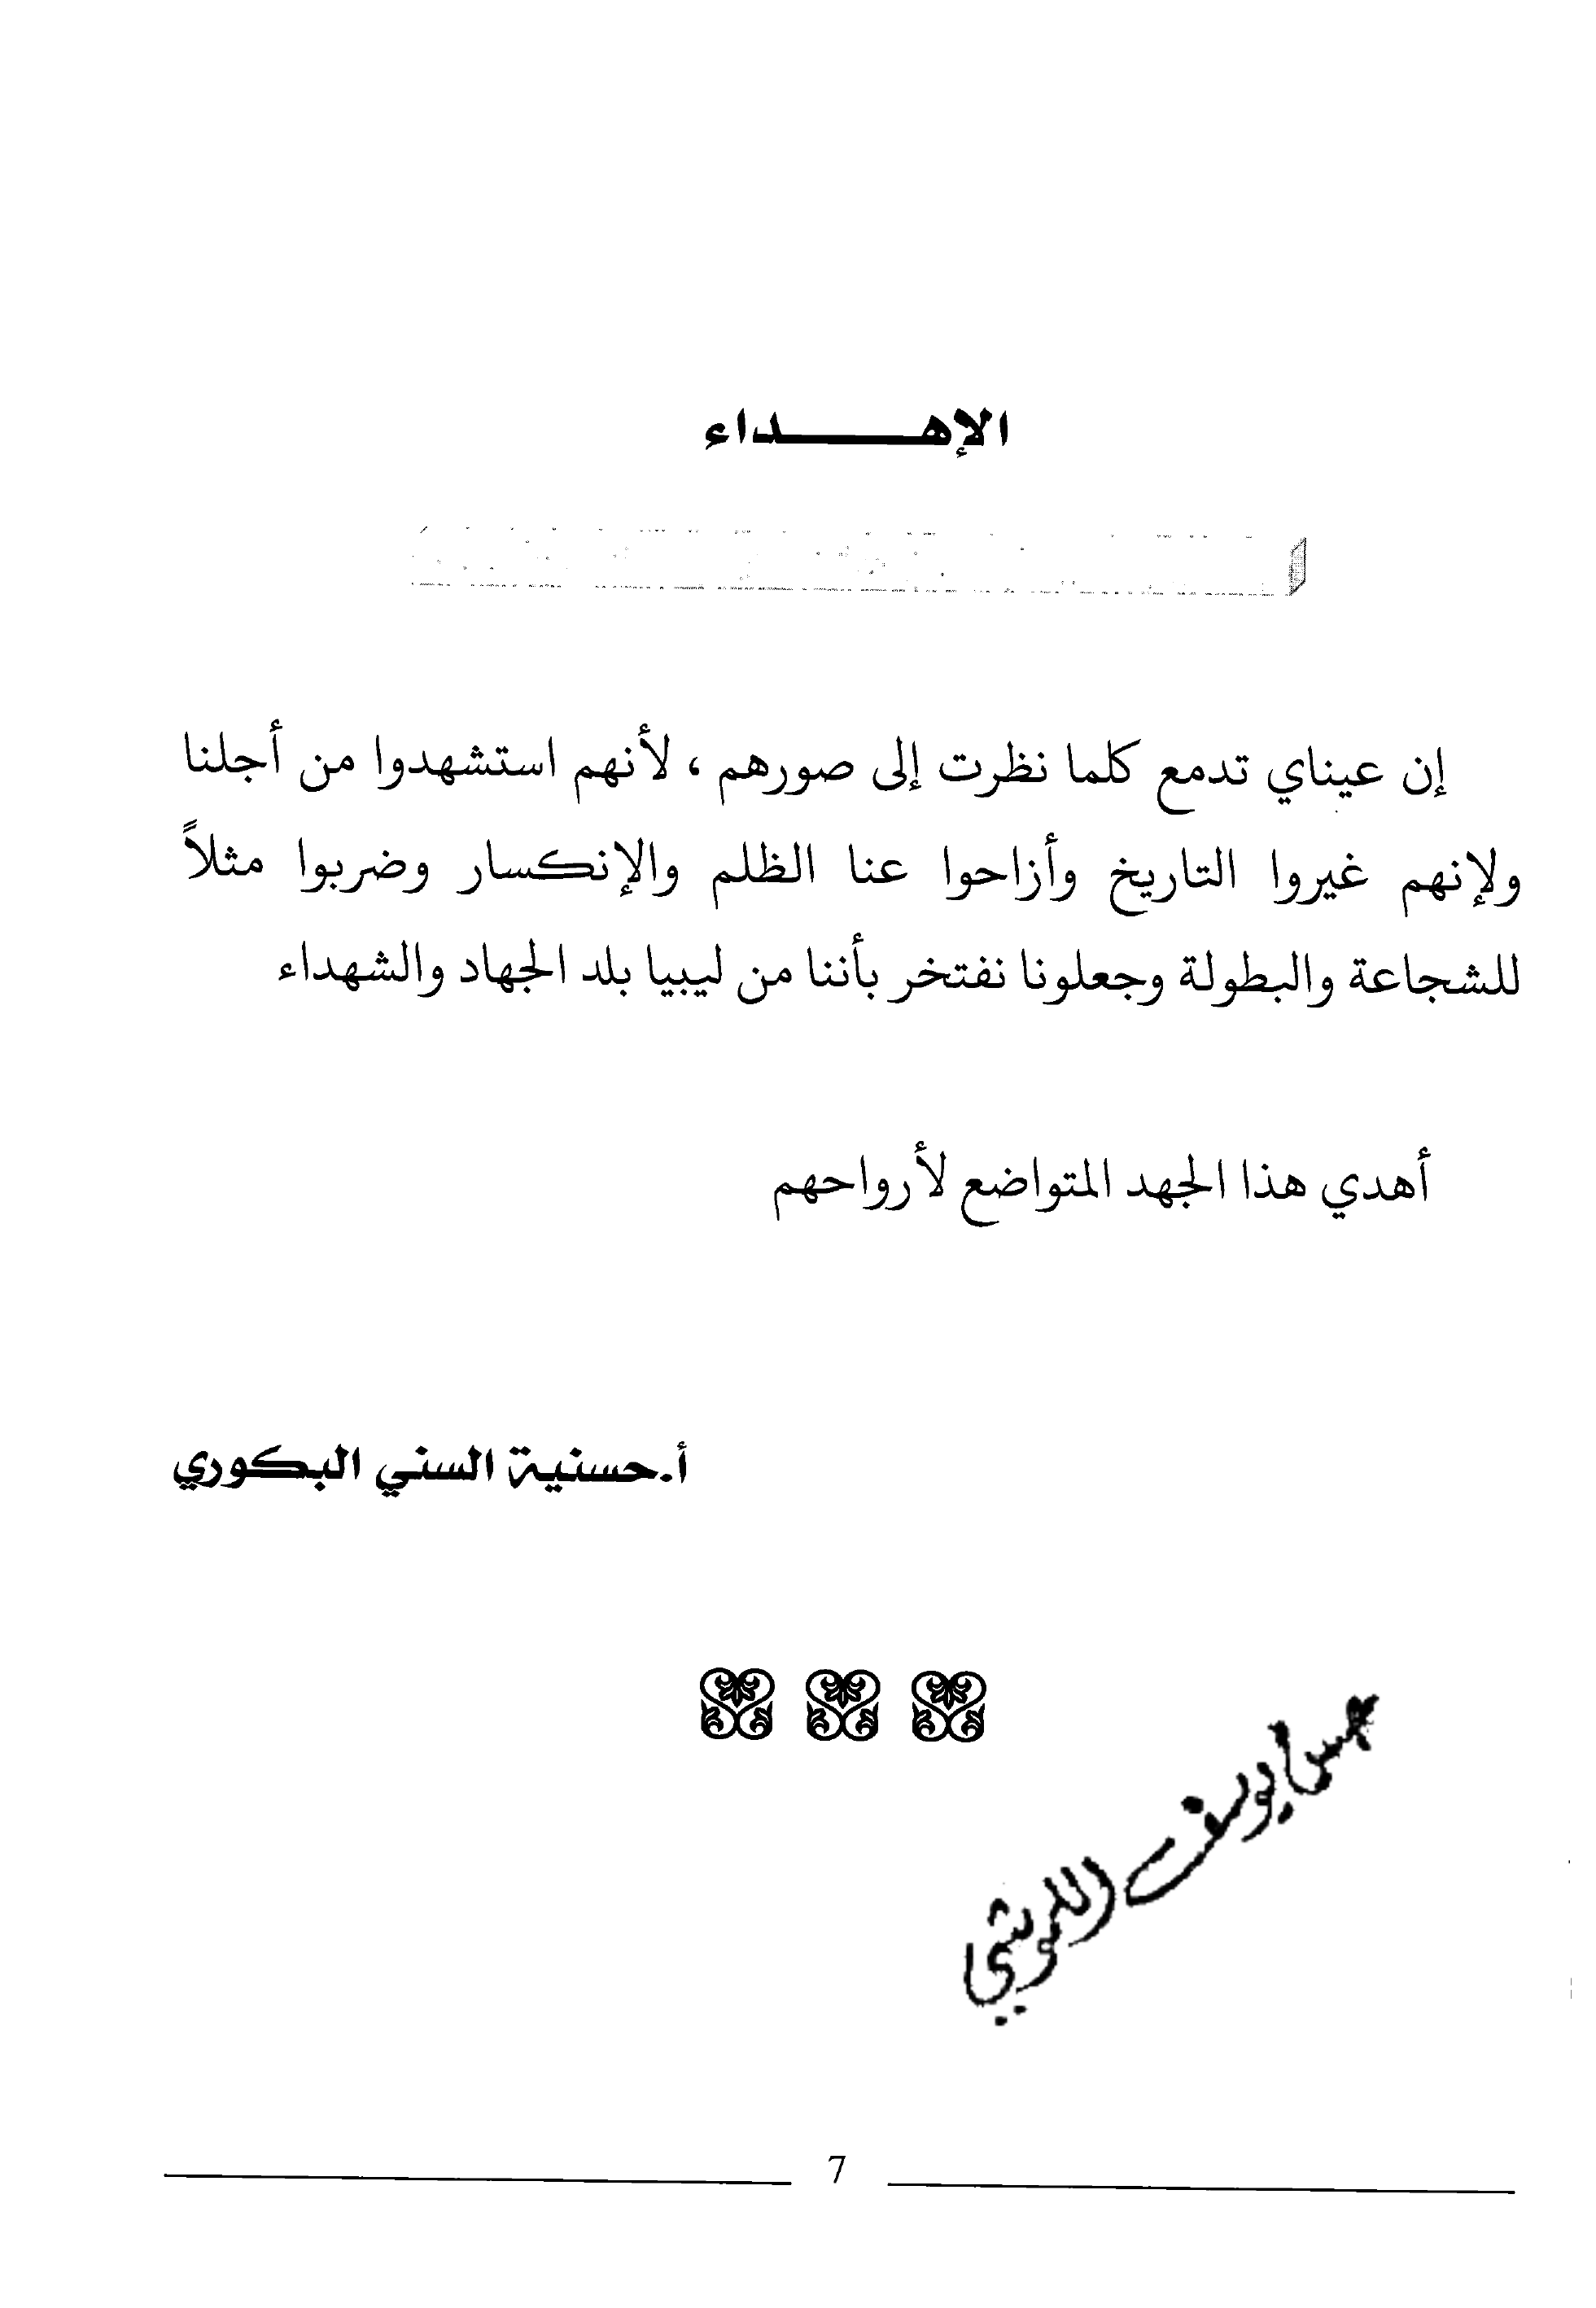 الإهـــــداء
إن عيناي تدمع كلما نظرت إلى صورهم ، لأنهم استشهدوا من أجلنا
ولإنهم غيروا التاريخ وأزاحوا عنا الظلم والإنكسار وضربوا مثلاً
للشجاعة والبطولة وجعلونا نفتخر بأننا من ليبيا بلد الجهاد والشهداء
أهدي هذا الجهد المتواضع لأرواحهم
أ.حسنية السني البكوري
يوسف
7